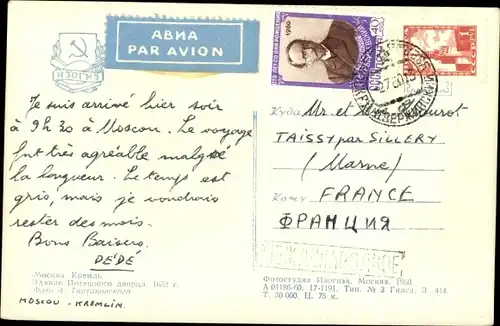 АВИА
PAR AVION
ИЗОГИЗ
1960
40
Je suis arrivé hier soir
à 9h30 à Moscou. Le voyage
fut très agréable malgré
la longueur. Le temps est
gris, mais je voudrais
rester des mois.
Bons Baisers.
DÉDÉ
Куда Mr et
TAISSY par SILLERY
(Marne)
Кому FRANCE
ФРАНЦИЯ
МЕЖДУНАРОДНОЕ
Москва. Кремль.
Здание Потешного дворца. 1652 г.
Фото А.
MOSCOU - KREMLIN
Фотостудия Изогиза. Москва. 1960
А 01186-60. 17-1191. Тип. № 3 Гизлс. З. 414
Т. 30 000. Ц. 75 к.